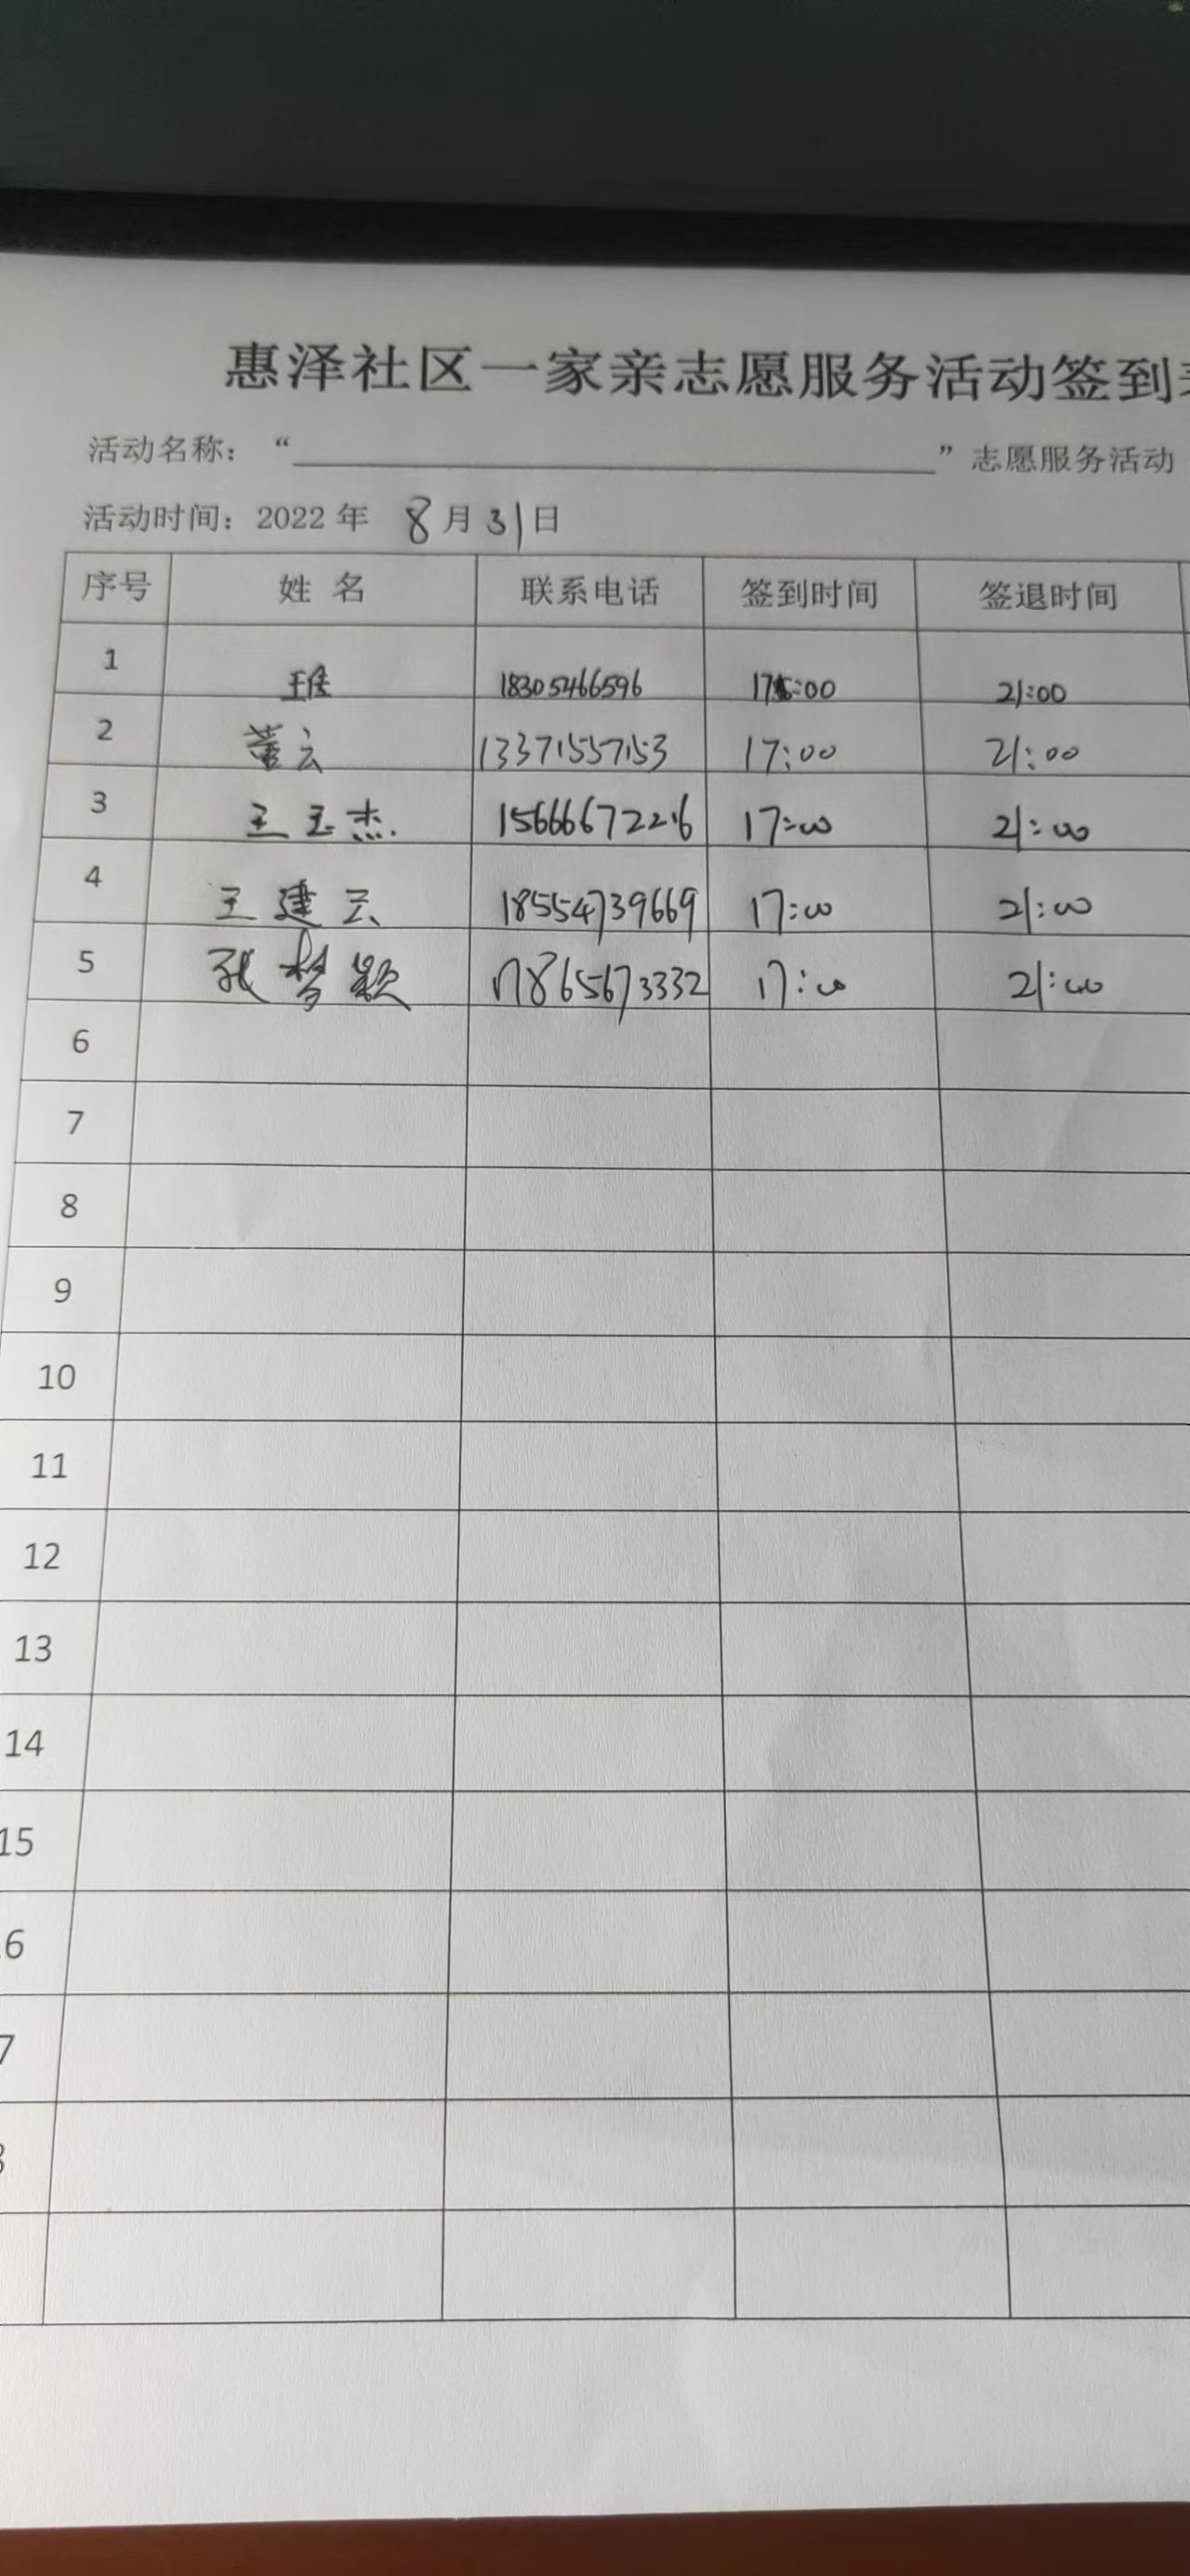 惠泽社区一家亲志愿服务活动签到
活动名称：“ ”志愿服务活动
活动时间：2022 年 8 月 31 日
序号 姓 名 联系电话 签到时间 签退时间
1 王佳 18305466596 17:00 21:00
2 董云 13371557153 17:00 21:00
3 王玉杰 15666672226 17:00 21:00
4 王建云 18554739669 17:00 21:00
5 张梦颖 17865673332 17:00 21:00
6
7
8
9
10
11
12
13
14
15
6
7